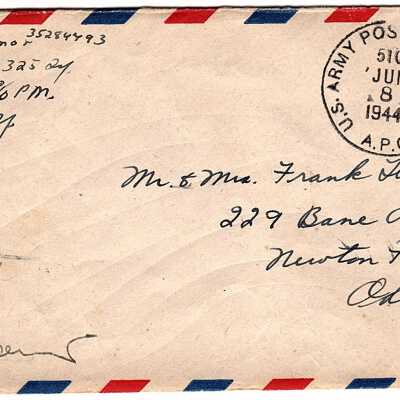 35284493
325
PM.
U.S. ARMY POS
510
JUN
8
1944
A.P.O
Mr. & Mrs. Frank
229 Bane
Newton